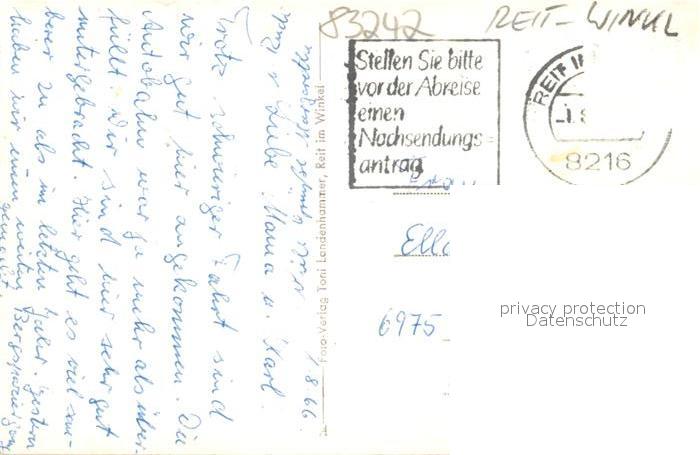 83242
REIT-WINKL
Stellen Sie bitte
vor der Abreise
einen
Nachsendungs=
antrag
REIT I
8216
6975
privacy protection
Datenschutz
Foto-Verlag Toni Landenhammer, Reit im Winkel
1.8.66.
Liebe Mama u. Karl.
Trotz schwieriger Fahrt sind
wir gut hier angekommen. Die
Autobahn war ja mehr als über-
füllt. Wir sind hier sehr gut
untergebracht. Hier geht es viel sau-
berer zu als im letzten Jahr. Gestern
haben wir einen weiten Bergspaziergang
gemacht.